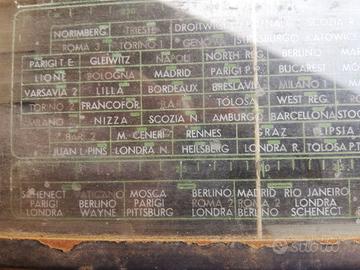 NORIMBERG TRIESTE DROITWIC SCOZIA
ROMA 3 TORINO 1 GENOVA STRASBURGO KATOWICE
PARIGI T.E. GLEIWITZ NAPOLI NORTH REG. BERLINO
LIONE BOLOGNA MADRID PARIGI P.P. BUCAREST
VARSAVIA 2 LILLA BORDEAUX BRESLAVIA MILANO 1
TORINO 2 FRANCOFOR. BARI TOLOSA WEST REG.
MILANO NIZZA SCOZIA N. AMBURGO BARCELLONA
BAR. 2 M. CENERI RENNES GRAZ LIPSIA
JUAN L-PINS LONDRA N. HEILSBERG LONDRA R. TOLOSA P.T.
SCHENECT VATICANO MOSCA BERLINO MADRID RIO JANEIRO
PARIGI BERLINO PARIGI ROMA 2 ROMA 2 LONDRA
LONDRA WAYNE PITTSBURG LONDRA BERLINO SCHENECT
subito